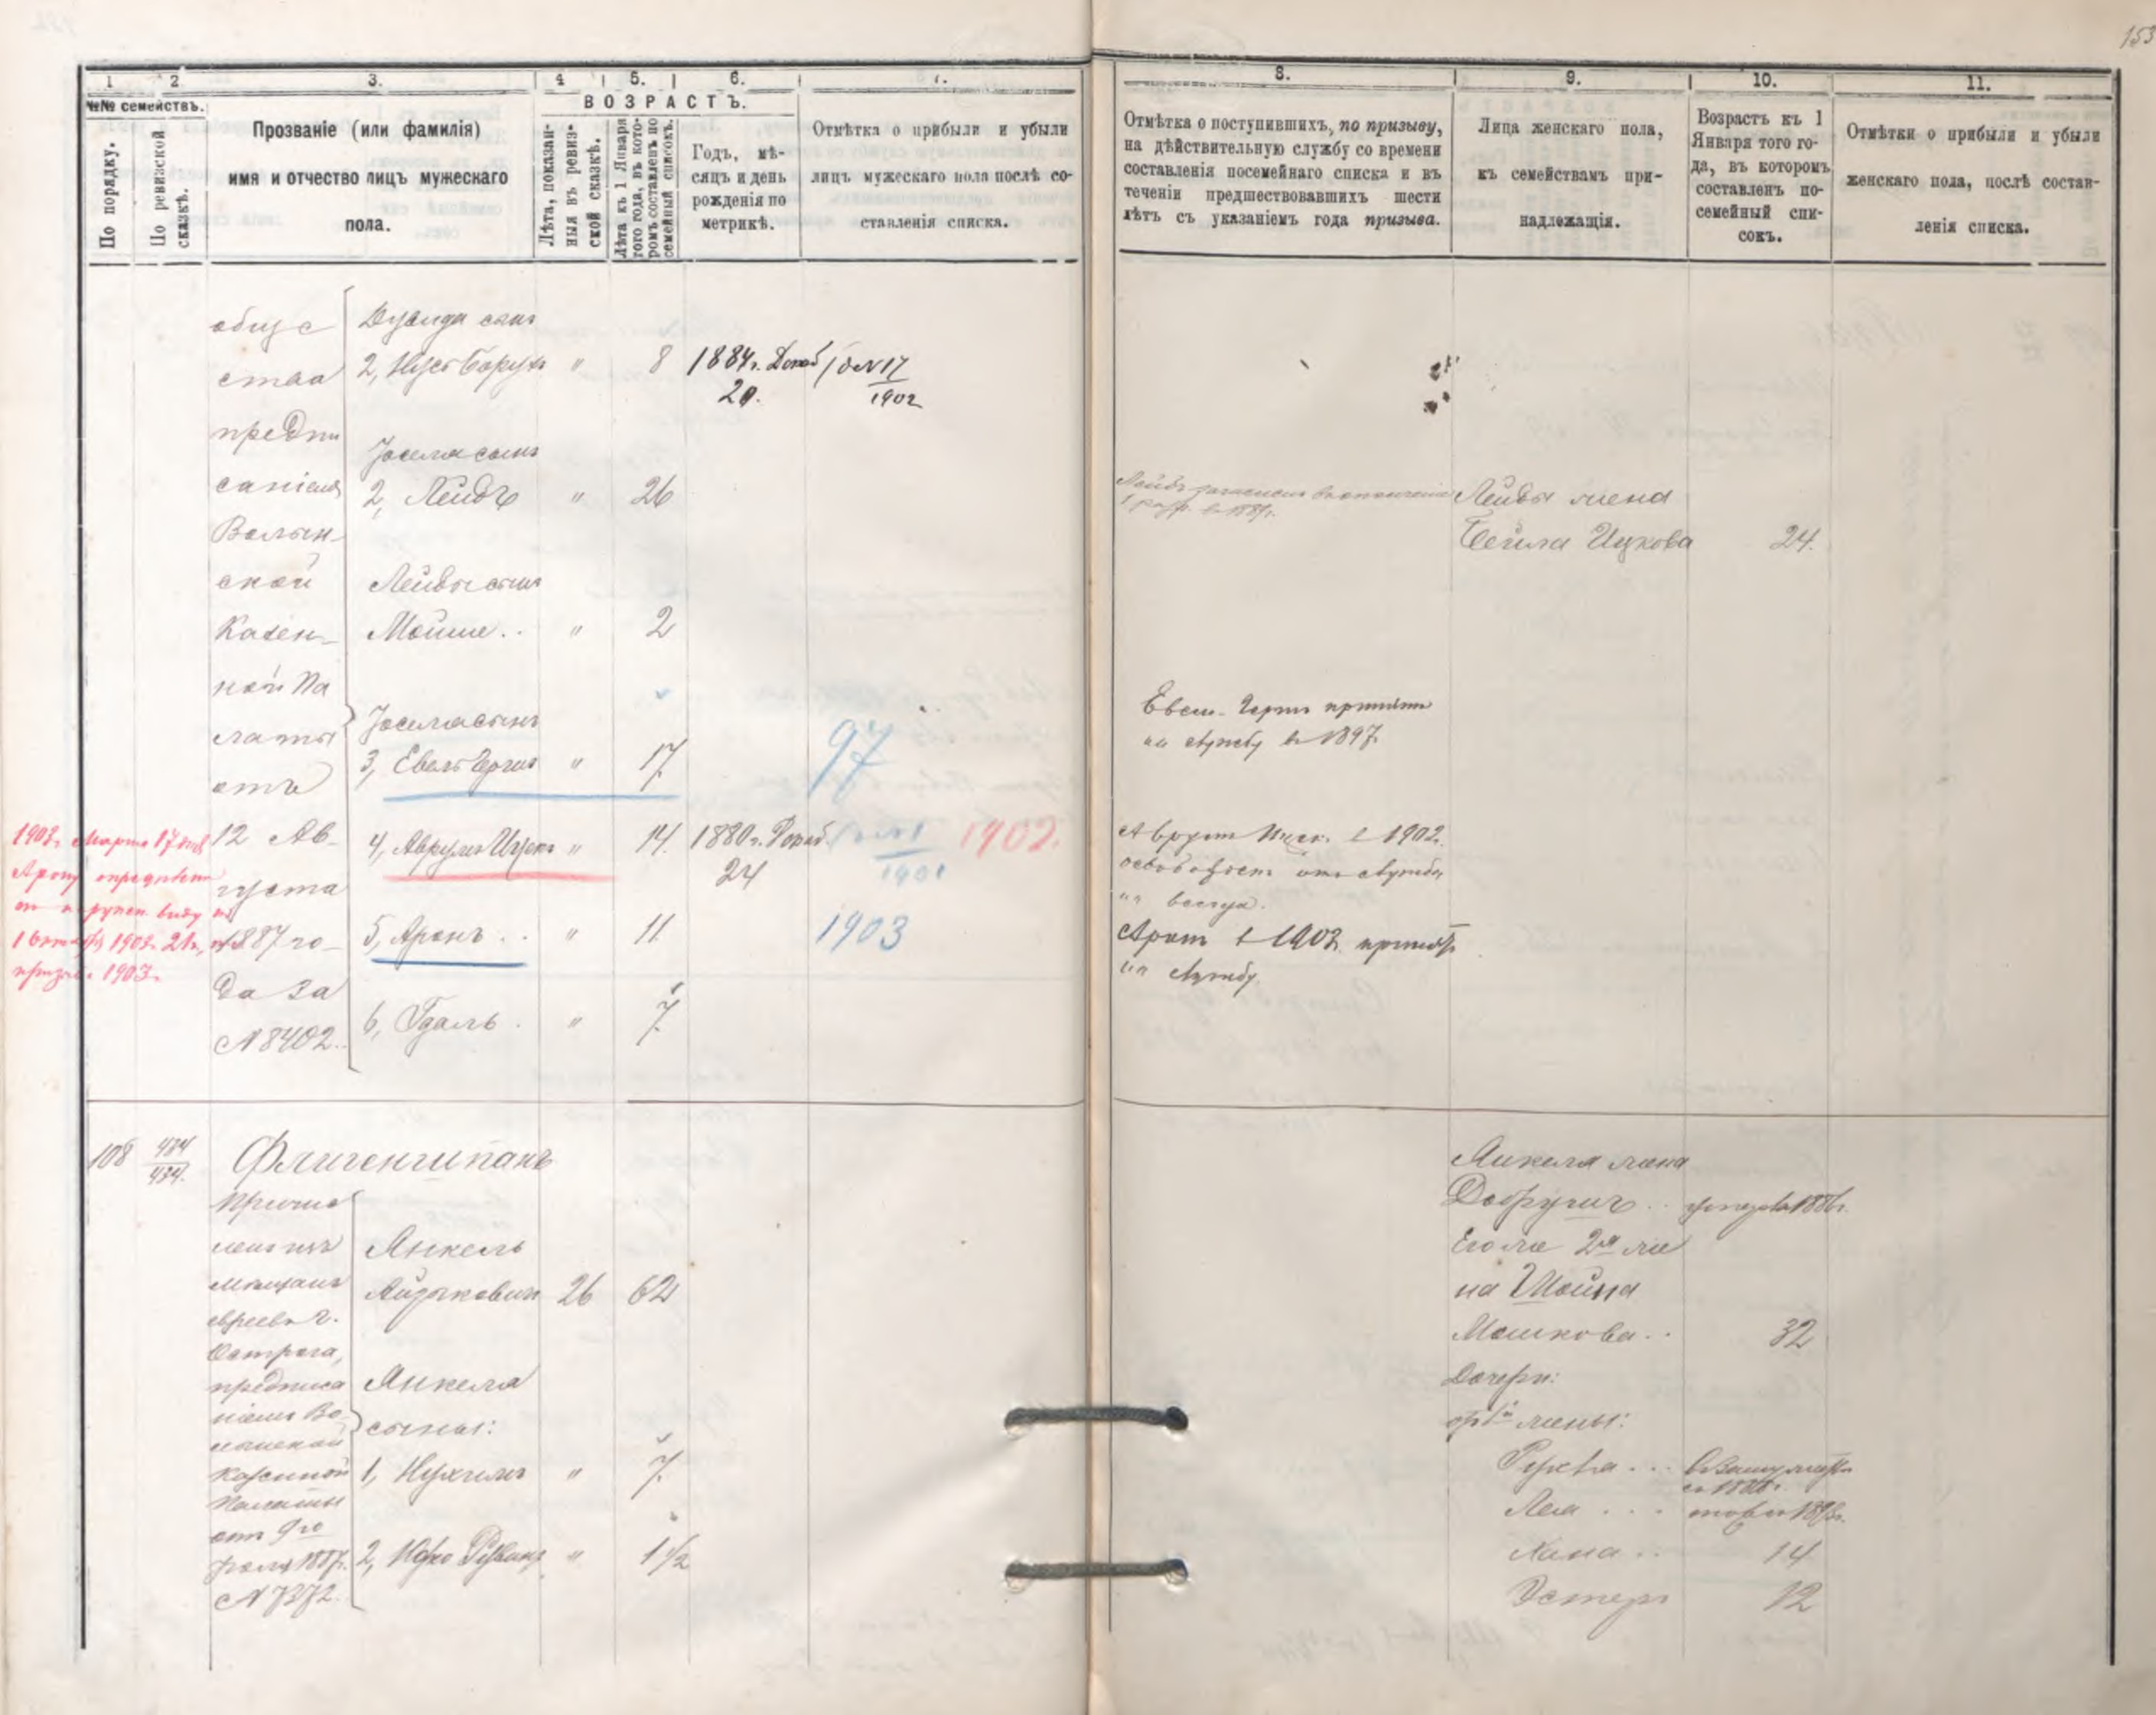 153
1
2
3.
4
5.
6.
7.
№№ семействъ.
По порядку.
По ревизской сказкѣ.
Прозваніе (или фамилія)
имя и отчество лицъ мужескаго
пола.
ВОЗРАСТЪ.
Лѣта, показан-
ныя въ ревиз-
ской сказкѣ.
Лѣта къ 1 Января
того года, въ кото-
ромъ составленъ по
семейный списокъ.
Годъ, мѣ-
сяцъ и день
рожденія по
метрикѣ.
Отмѣтка о прибыли и убыли
лицъ мужескаго пола послѣ со-
ставленія списка.
8.
9.
10.
11.
Отмѣтка о поступившихъ, по призыву,
на дѣйствительную службу со времени
составленія посемейнаго списка и въ
теченіи предшествовавшихъ шести
лѣтъ съ указаніемъ года призыва.
Лица женскаго пола,
къ семействамъ при-
надлежащія.
Возрастъ къ 1
Января того го-
да, въ которомъ
составленъ по-
семейный спи-
сокъ.
Отмѣтки о прибыли и убыли
женскаго пола, послѣ состав-
ленія списка.
обще
ства
предпи
саніемъ
Волын-
ской
Казен-
ной Па
латы
отъ
12 Ав-
густа
1887 го-
да за
№ 8402.
сынъ
2, Борухъ " 8 1884 г. Декаб 20. № 17 1902
Іоселя сынъ
2, Лейбъ " 26
1 разр. въ
Лейбы жена
Бейла Ицкова 24.
Лейбы сынъ
Мойше.. " 2
Іоселя сынъ
3, Евель Герш " 17 97
Евел. Герш принятъ
на службу въ 1897.
4, Аврумъ Ицекъ " 14. 1880 г. Декаб. 24 1901 1902.
Аврум Ицек. в 1902.
освобожден от службы
навсегда.
1903 г. Марта 17 дня
Арону определен
по наружн. виду к
1903 21 г.,
призыва 1903 г.
5, Аронъ.. " 11 1903
Арон в 1903 принят
на службу
6, Гдаль. " 7
108 484 434.
Флигенгипанъ
Причис
мѣщанъ
евреевъ г.
Острога,
предписа
ніемъ Во
лынской
Казенной
Палаты
отъ 9го
1887 г.
№ 7372.
Янкель
Айзыкович 26 62
Янкеля
сыны:
1, Нухимъ " 7
2, " 1 1/2
Янкеля жена
умерла 1886 г.
Его же 2я же
на Шейна
Мошкова.. 32
Дочери:
отъ 1й жены:
Рухля...
Лея...
Хана.. 14
Эстеръ 12